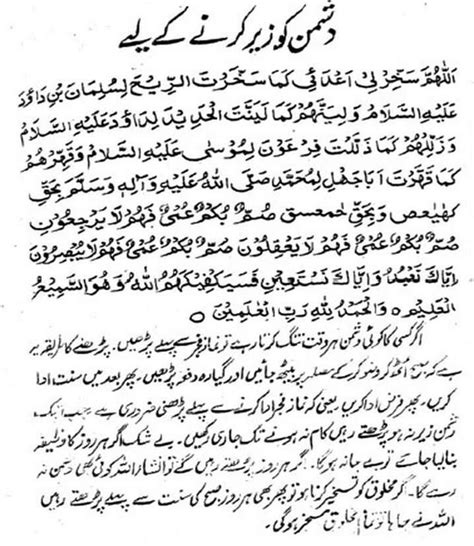 دشمن کو زیر کرنے کے لیے
اَللّٰهُمَّ سَخِّرْ لِیْ اَعْدَآئِیْ کَمَا سَخَّرْتَ الرِّیْحَ لِسُلَیْمَانَ بْنِ دَاوٗدَ
عَلَیْهِ السَّلَامُ وَلَیِّنْهُمْ کَمَا لَیَّنْتَ الْحَدِیْدَ لِدَاوٗدَ عَلَیْهِ السَّلَامُ
وَذَلِّلْهُمْ کَمَا ذَلَّلْتَ فِرْعَوْنَ لِمُوْسٰی عَلَیْهِ السَّلَامُ وَقَهِّرْهُمْ
کَمَا قَهَّرْتَ اَبَا جَهْلٍ لِمُحَمَّدٍ صَلَّی اللّٰهُ عَلَیْهِ وَاٰلِهٖ وَسَلَّمَ بِحَقِّ
کٓهٰیٰعٓصٓ وَبِحَقِّ حٰمٓعٓسٓقٓ صُمٌّۢ بُکْمٌ عُمْیٌ فَهُمْ لَا یَرْجِعُوْنَ
صُمٌّۢ بُکْمٌ عُمْیٌ فَهُمْ لَا یَعْقِلُوْنَ صُمٌّۢ بُکْمٌ عُمْیٌ فَهُمْ لَا یُبْصِرُوْنَ
اِیَّاكَ نَعْبُدُ وَاِیَّاكَ نَسْتَعِیْنُ فَسَیَکْفِیْکَهُمُ اللّٰهُ وَهُوَ السَّمِیْعُ
الْعَلِیْمُ ○ وَالْحَمْدُ لِلّٰهِ رَبِّ الْعٰلَمِیْنَ ○
اگر کسی کا کوئی دشمن ہر وقت تنگ کرتا رہے تو نماز فجر سے پہلے پڑھیں۔ پڑھنے کا طریقہ یہ
ہے کہ صبح اُٹھ کر وضو کر کے مصلے پر بیٹھ جائیں اور گیارہ دفعہ پڑھیں۔ پھر بعد میں سنت ادا
کریں۔ پھر فرض ادا کریں یعنی کہ نماز فجر ادا کرنے سے پہلے پڑھنی ضروری ہے جب تک
دشمن زیر نہ ہو پڑھتے رہیں کام نہ ہونے تک جاری رکھیں۔ بے شک اگر ہر روز کا وظیفہ
بنایا جائے تو بے جا نہ ہوگا۔ ہر روز پڑھتے رہیں گے تو انشاء اللہ کوئی بھی دشمن نہ
رہے گا۔ اگر مخلوق کو تسخیر کرنا ہو تو پھر بھی ہر روز صبح کی سنت سے پہلے پڑھتے رہیں
اللہ نے چاہا تو تمام مخلوق مسخر ہوگی۔